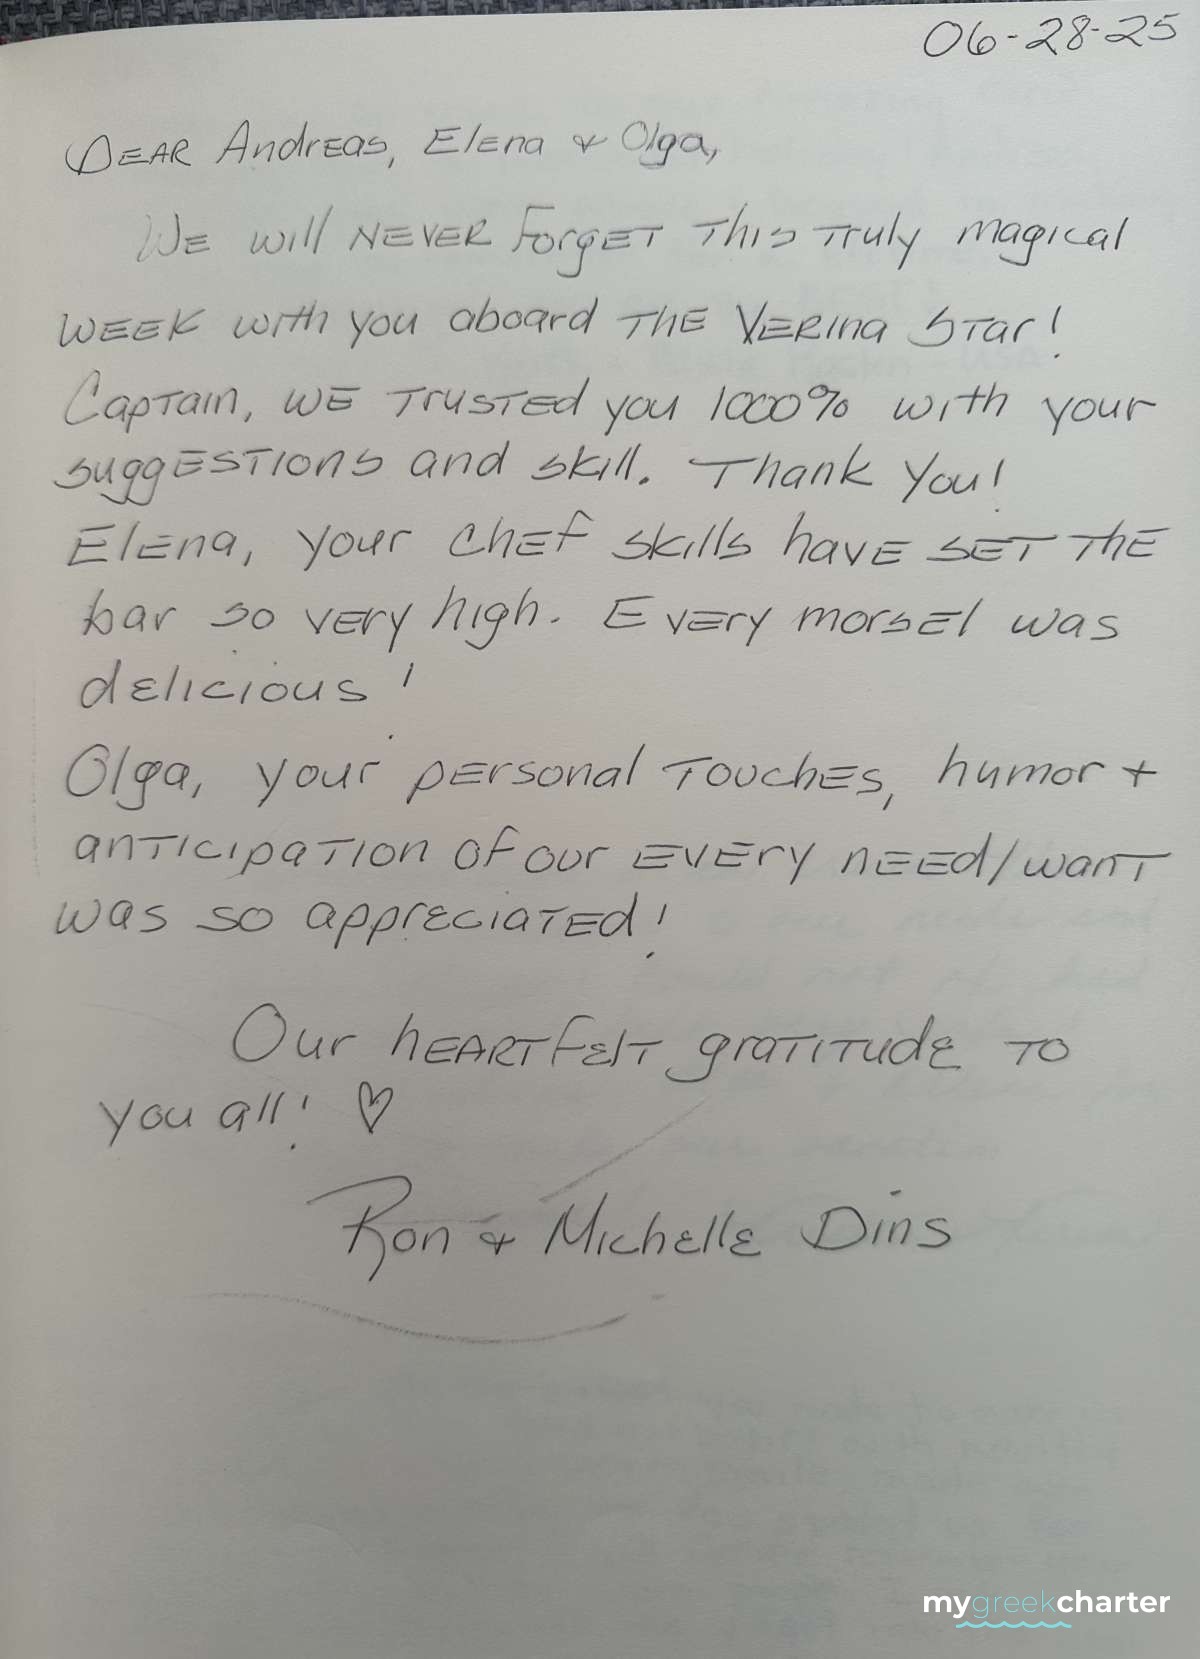 06-28-25
Dear Andreas, Elena & Olga,
We will never forget this truly magical
week with you aboard the Verina Star!
Captain, we trusted you 1000% with your
suggestions and skill. Thank you!
Elena, your chef skills have set the
bar so very high. Every morsel was
delicious!
Olga, your personal touches, humor +
anticipation of our every need/want
was so appreciated!
Our heartfelt gratitude to
you all! ♡
Ron & Michelle Dins
mygreekcharter